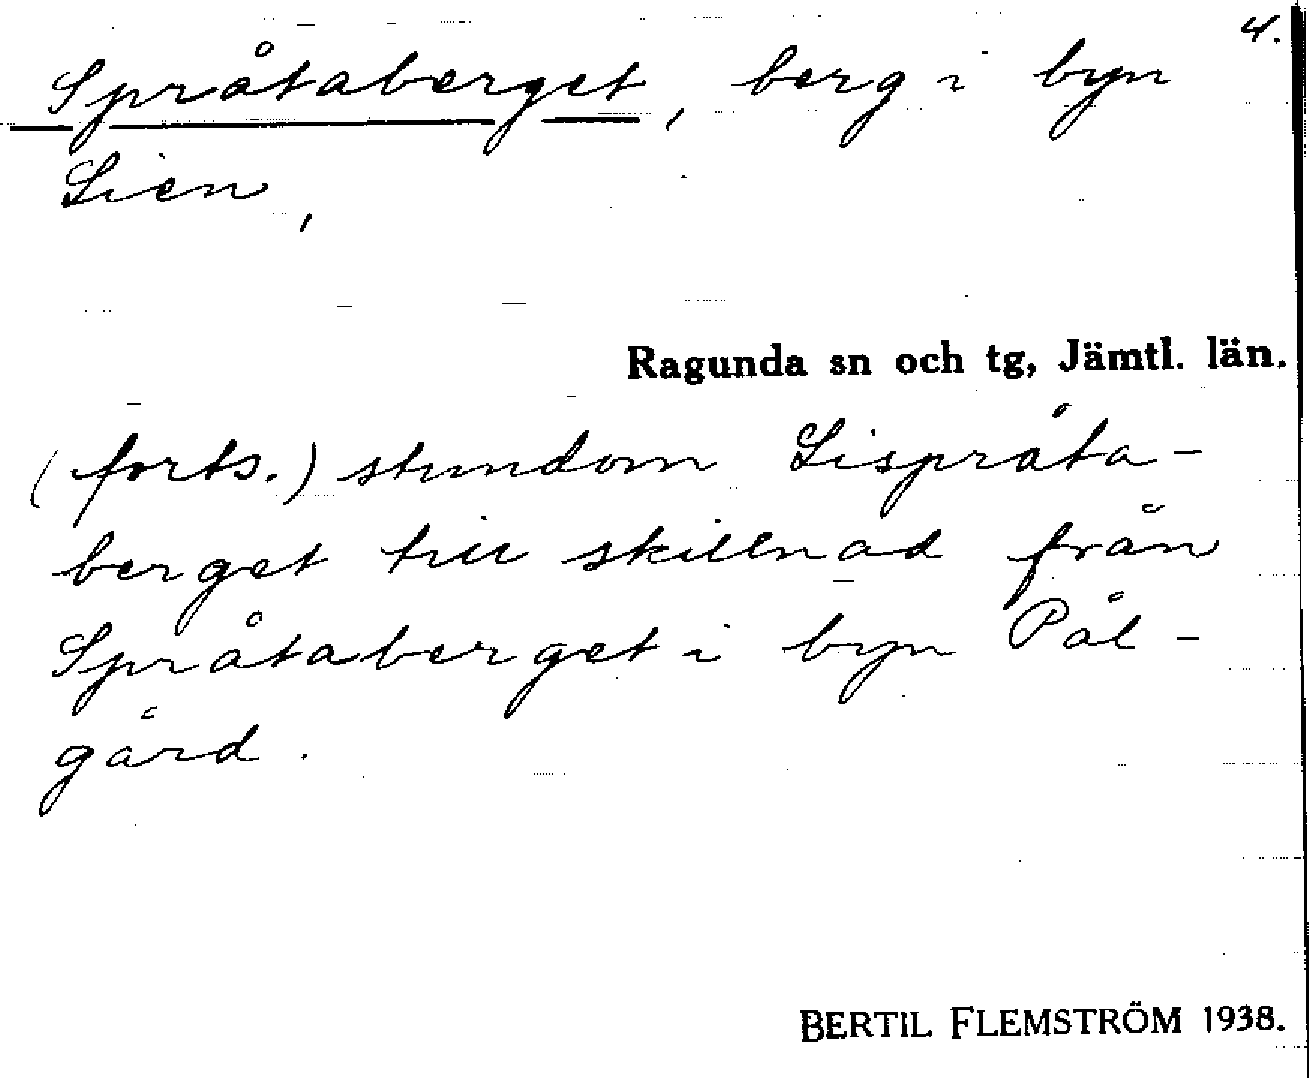 4.
Språtaberget, berg i byn
Lien,
Ragunda sn och tg, Jämtl. län.
(forts.) stundom Lispråta-
berget till skillnad från
Språtaberget i byn Pål-
gård.
BERTIL FLEMSTRÖM 1938.